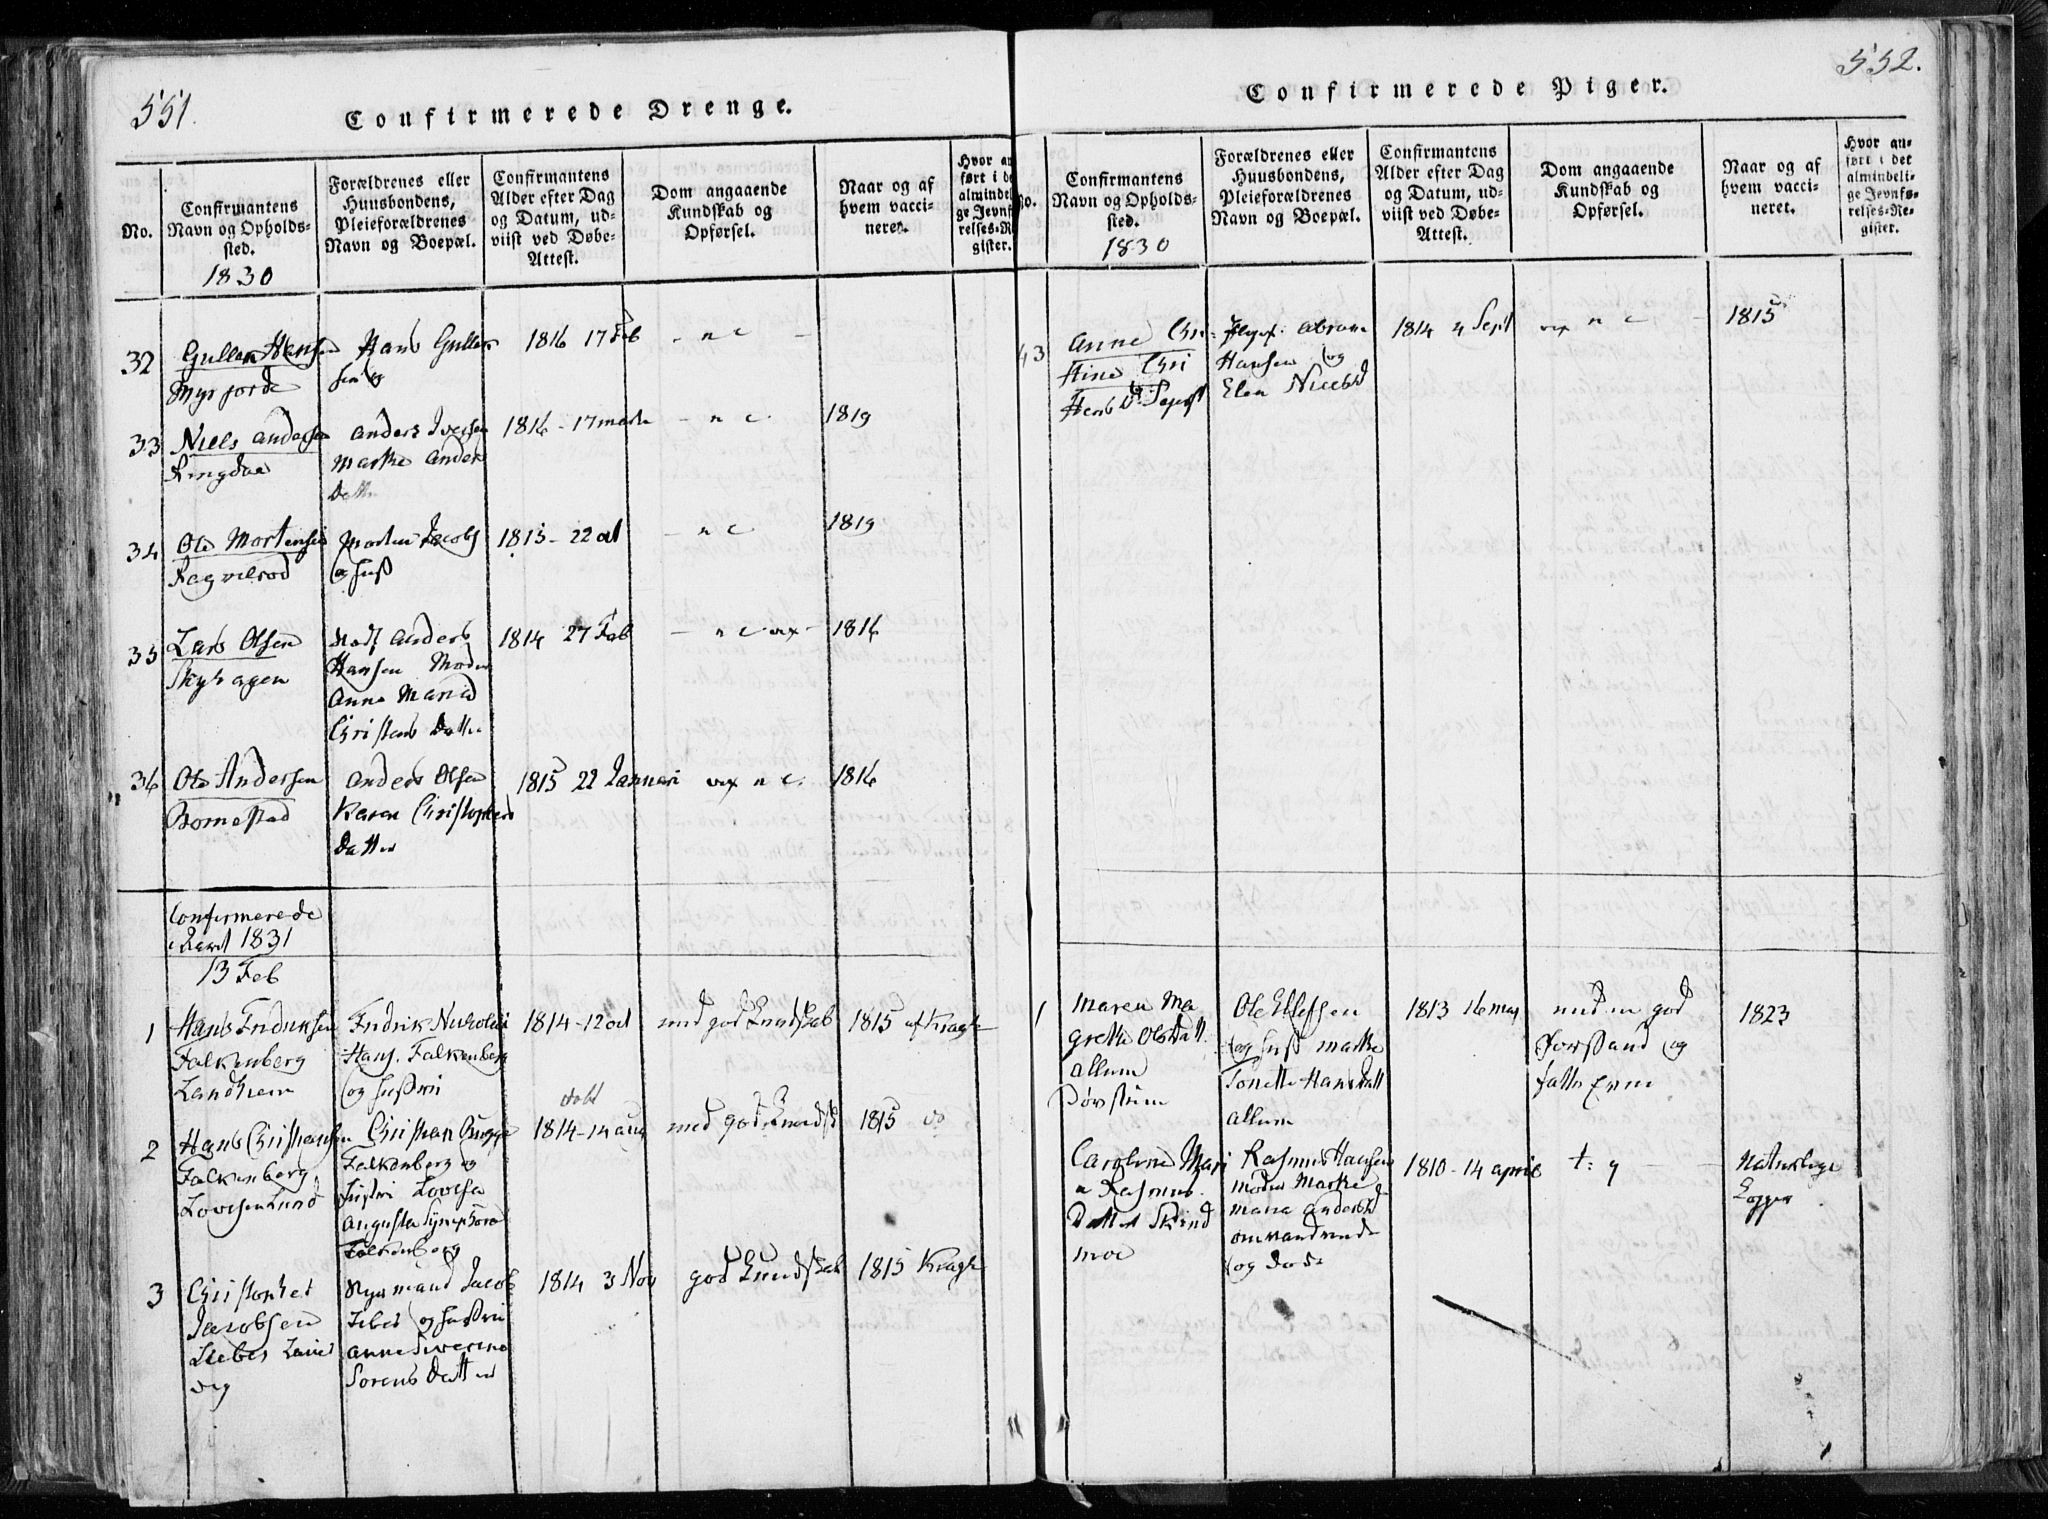 551.
Confirmerede Drenge.
No.
Confirmantens
Navn og Opholds-
sted.
1830
Forældrenes eller
Huusbondens,
Pleieforældrenes
Navn og Boepæl.
Confirmantens
Alder efter Dag
og Datum, ud-
viist ved Døbe-
Attest.
Dom angaaende
Kundskab og
Opførsel.
Naar og af
hvem vacci-
neret.
Hvor an
ført i de
almindel
ge Jevnf
relses-R
gister.
32
Gullek Hansen
Myrjorde
Hans Gullik
sen og
1816 17 Feb
- n c -
33
Niels Andersen
Ringdae
Anders Iversen
Marthe Anders
Datt
1816 - 17 marts
- n c
1819
34
Ole Mortensen
Morten Jacobs
og hust
1815 - 22 oct
- n c
1819
35
Lars Olsen
Skyhagen
Anders
Hansen Moder
Anne Maria
Christens Datter
1814 27 Feb
- n c
1816
36
Ole Andersen
Bomestad
Anders Olsen
Karen Christophers
Datter
1815 22 Januari
n c.
1816
Confirmerede
i Aaret 1831
13 Feb
1
Hans Fredriksen
Falkenberg
Landhem
Fredrik Nicholai
Hans. Falkenberg
og hustru
1814 - 12 oct
med god kundskab
1815 af Kragh
2
Hans Christiansen
Falkenberg
Lovisenlund
Christian Bugge
Falkenberg og
hustru Lovisa
Augusta Synephora
Falkenberg
døbt
1814 - 14 aug
med god kundsk
1815 do
3
Christopher
Jacobsen
Liebes Laur
vig
Styrmand Jacob
Liebes og hustru
Anne Severine
Sorens Datter
1814 3 Nov
god kundskab
1815 Kragh
552.
Confirmerede Piger.
No.
Confirmantens
Navn og Opholds-
sted.
1830
Forældrenes eller
Huusbondens,
Pleieforældrenes
Navn og Boepæl.
Confirmantens
Alder efter Dag
og Datum, ud-
viist ved Døbe-
Attest.
Dom angaaende
Kundskab og
Opførsel.
Naar og af
hvem vacci-
neret.
Hvor an-
ført i det
almindeli-
ge Jevnfø-
relses-Re-
gister.
43
Anne Chri-
stine Chri
Abram
Hansen og
Elen Nielsd
1814 4 Sept
n c -
1815
1
Maren Ma
grethe Olsdatt.
allum
Ole Ellefsen
og hust Marthe
Tonette Hansdatt
allum
1813 16 may
med en god
Forstand og
1823
Caroline Mari
a Rasmus
Datter Skind
moe
Rasmus Hansen
moder Marthe
Maria Andersd
omvandrende
og døde
1810 - 14 april
t: g - -
Naturlige
Kopper